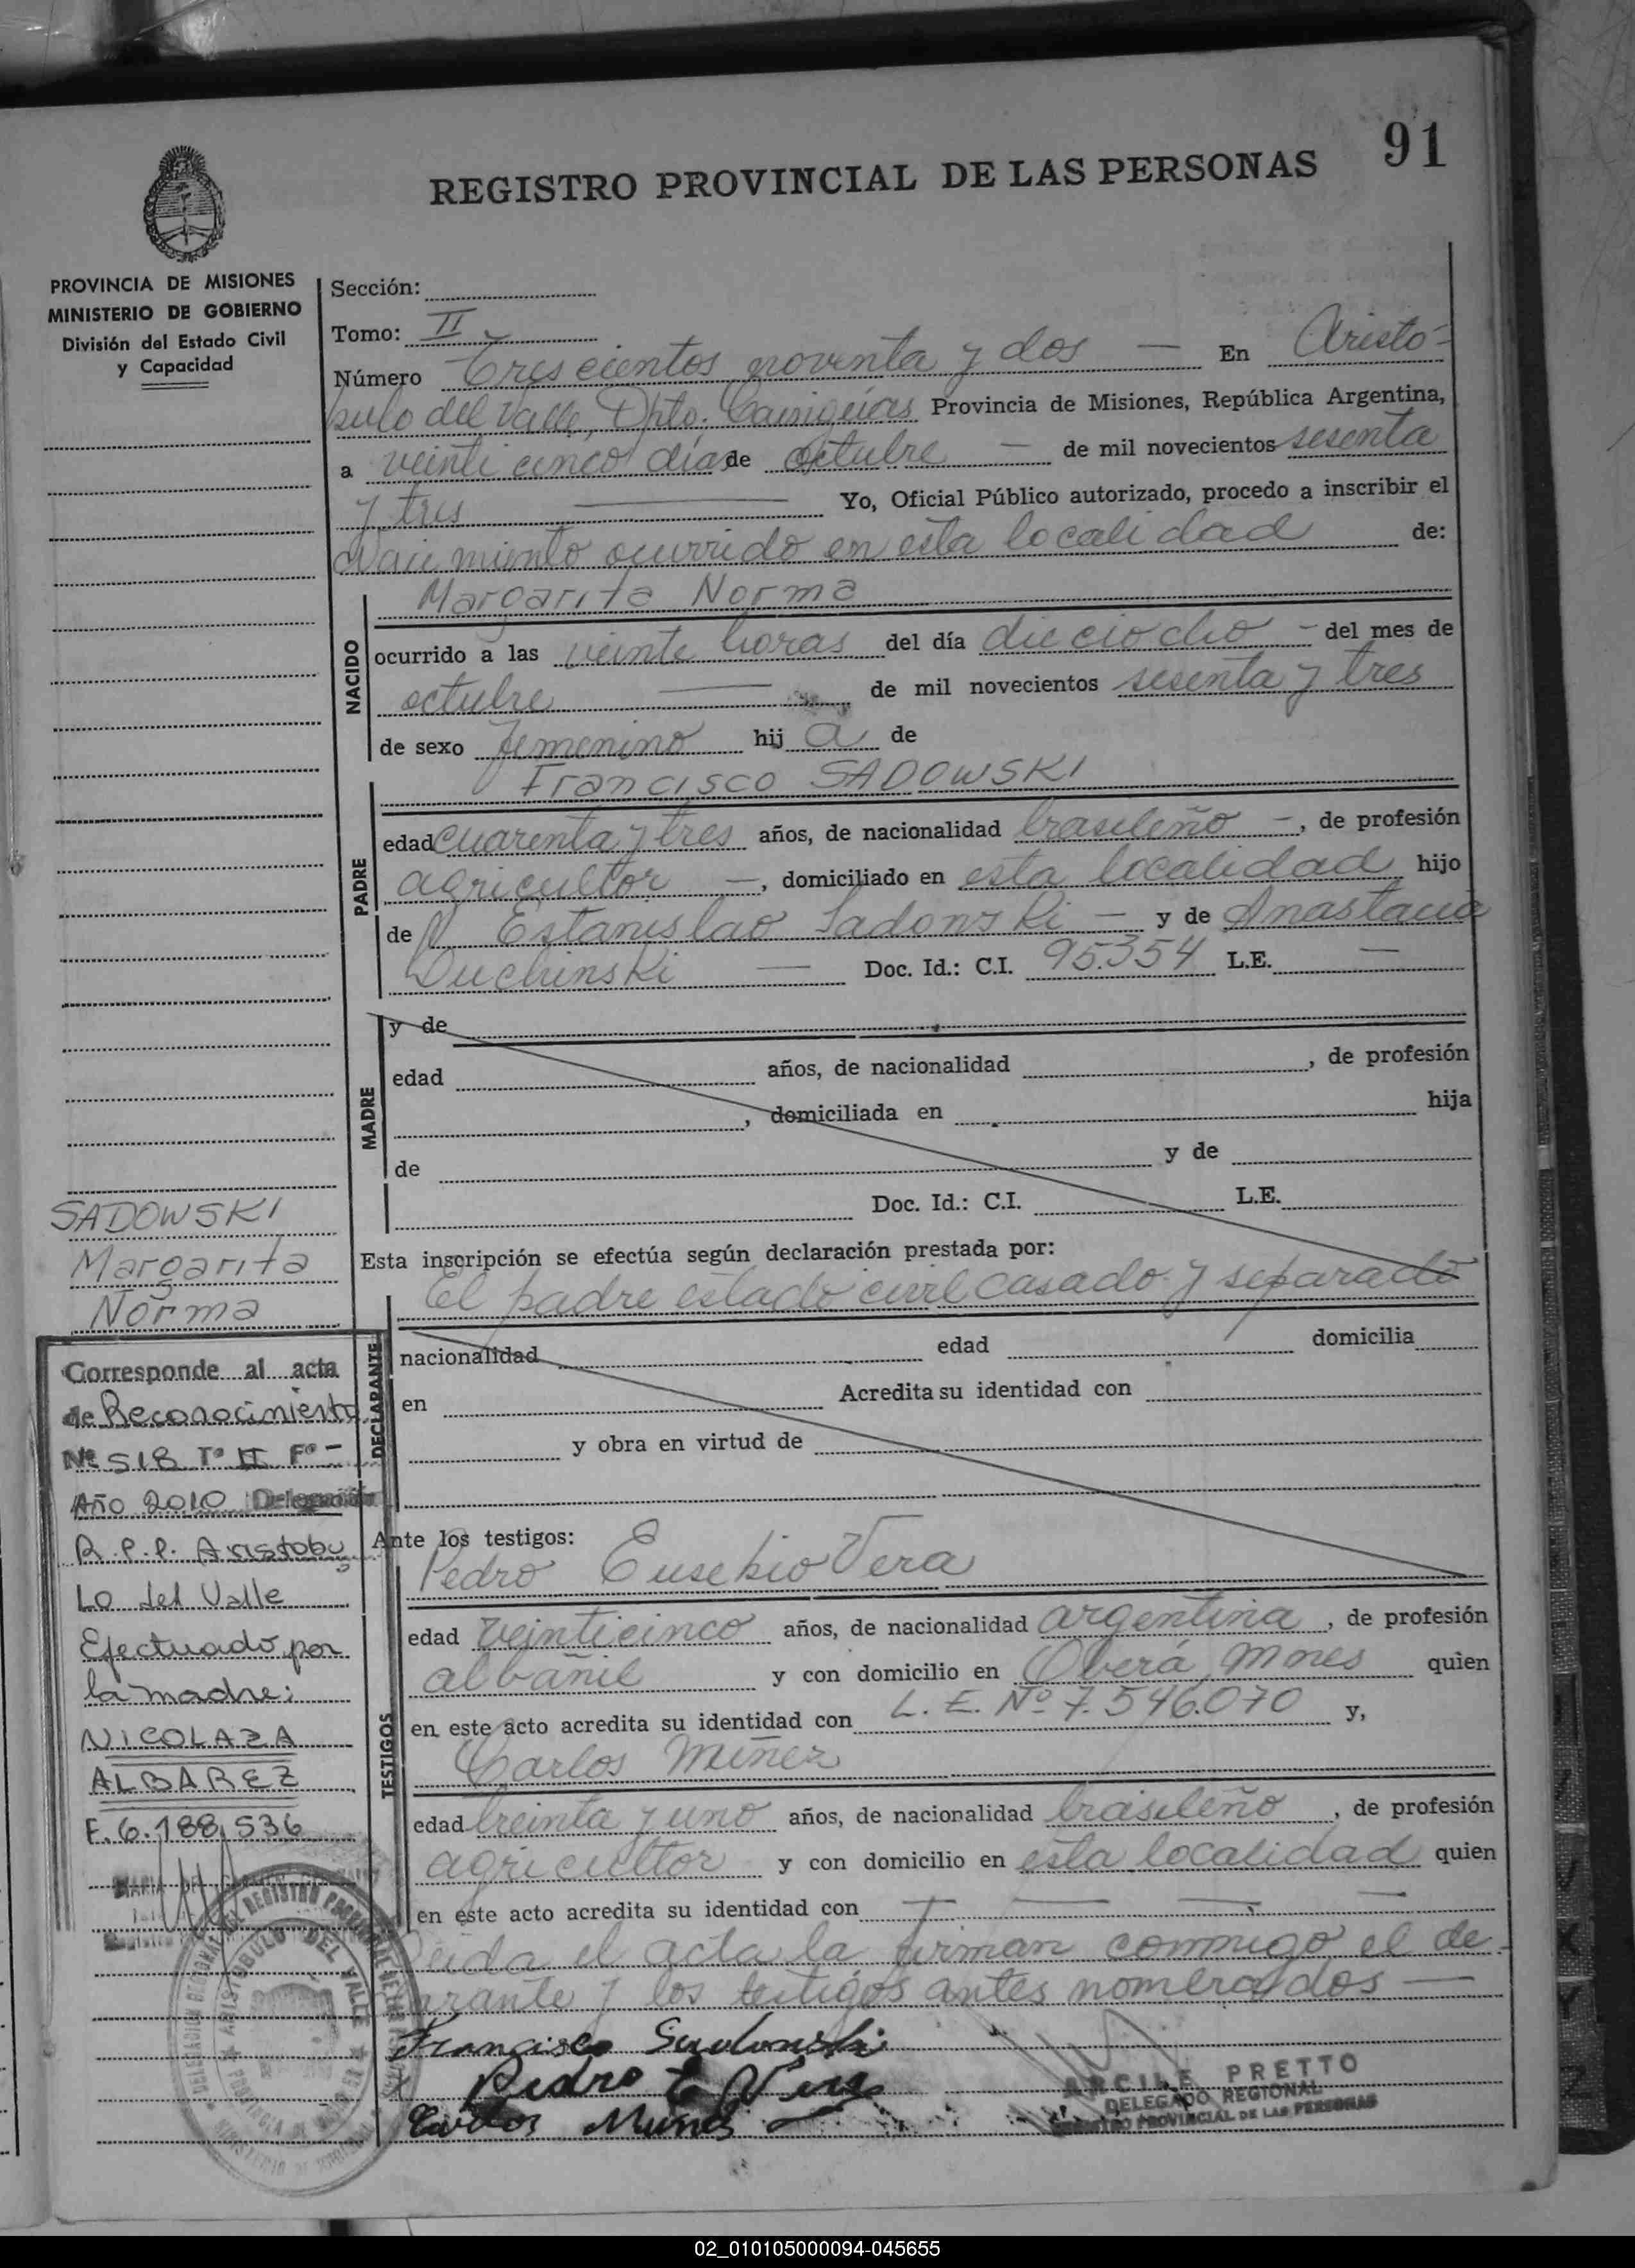 91
REGISTRO PROVINCIAL DE LAS PERSONAS
PROVINCIA DE MISIONES
MINISTERIO DE GOBIERNO
División del Estado Civil
y Capacidad
Sección:
Tomo: II
Número Trescientos noventa y dos — En Aristó-
bulo del Valle, Dpto. Cainguás Provincia de Misiones, República Argentina,
a veinticinco días de octubre — de mil novecientos sesenta
y tres — Yo, Oficial Público autorizado, procedo a inscribir el
Nacimiento ocurrido en esta localidad de:
Margarita Norma
NACIDO
ocurrido a las veinte horas del día dieciocho - del mes de
octubre — de mil novecientos sesenta y tres
de sexo femenino hij a de
Francisco SADOWSKI
PADRE
edad cuarenta y tres años, de nacionalidad brasileño -, de profesión
agricultor —, domiciliado en esta localidad hijo
de Estanislao Sadowski — y de Anastacia
Duchinski — Doc. Id.: C.I. 95.354 L.E. —
MADRE
y de
edad años, de nacionalidad , de profesión
, domiciliada en hija
de y de
Doc. Id.: C.I. L.E.
Esta inscripción se efectúa según declaración prestada por:
El padre estado civil casado y separado
DECLARANTE
nacionalidad edad domicilia
en Acredita su identidad con
y obra en virtud de
Ante los testigos:
Pedro Eusebio Vera
TESTIGOS
edad veinticinco años, de nacionalidad argentina, de profesión
albañil y con domicilio en Oberá, Mnes quien
en este acto acredita su identidad con L. E. Nº 7.546.070 y,
Carlos Muñez
edad treinta y uno años, de nacionalidad brasileño, de profesión
agricultor y con domicilio en esta localidad quien
en este acto acredita su identidad con — — — —
Leida el acta la firman conmigo el de-
larante y los testigos antes nombrados —
Francisco Sadowski
Pedro E Vera
Carlos Muñez
ARCILE PRETTO
DELEGADO REGIONAL
REGISTRO PROVINCIAL DE LAS PERSONAS
SADOWSKI
Margarita
Norma
Corresponde al acta
de Reconocimiento
Nº 518 Tº II Fº -
Año 2010 Delegación
R.P.P. Aristobu
Lo del Valle
Efectuado por
la madre:
NICOLAZA
ALBAREZ
F. 6.188.536
DELEGACION REGIONAL DEL REGISTRO PROVINCIAL DE LAS PERSONAS
ARISTOBULO DEL VALLE
PROVINCIA DE MISIONES
02_010105000094-045655